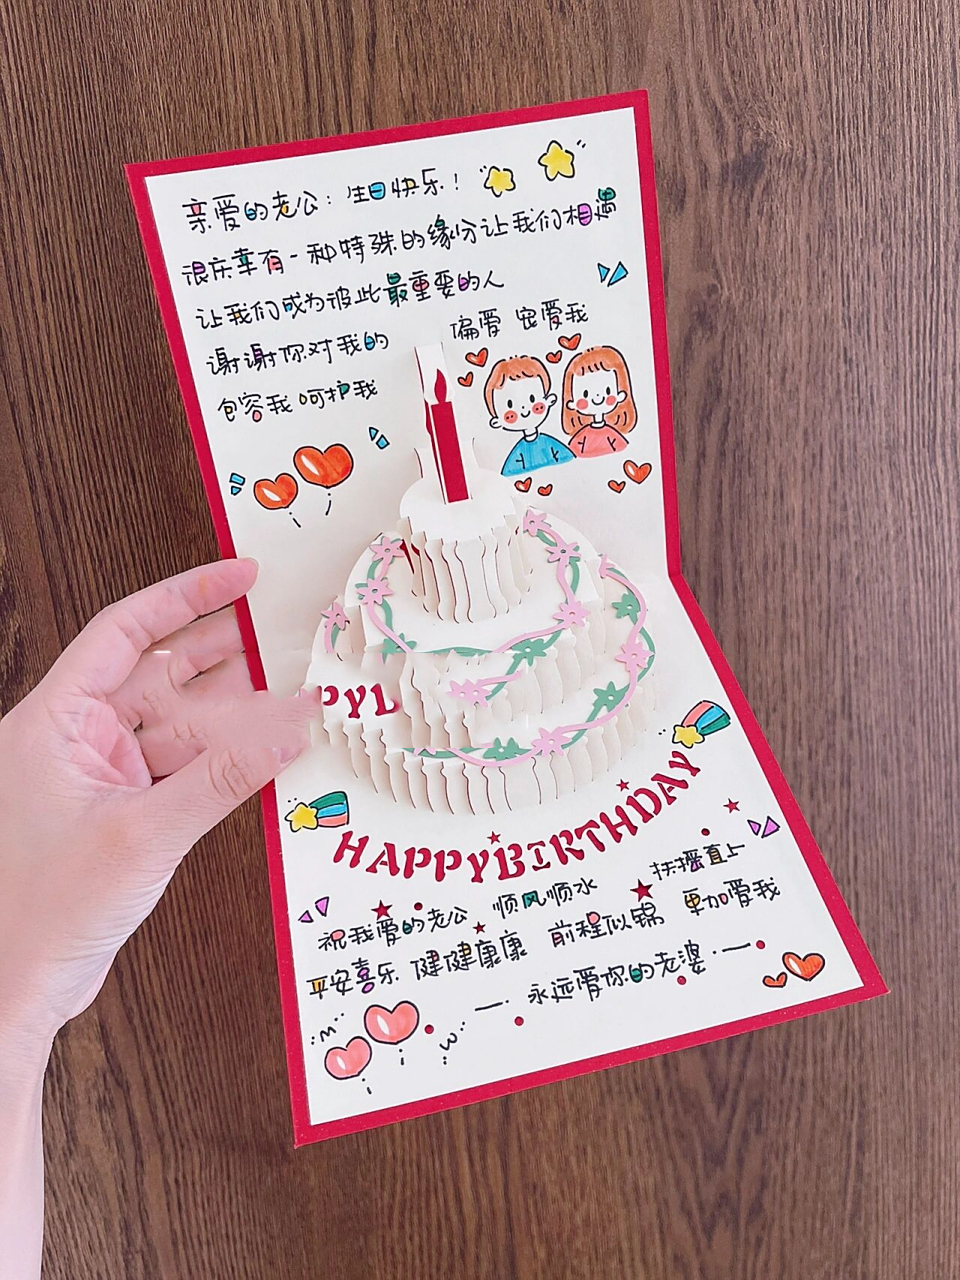 亲爱的老公：生日快乐！
很庆幸有一种特殊的缘分让我们相遇
让我们成为彼此最重要的人
谢谢你对我的 偏爱 宠爱我
包容我 呵护我
PYL
HAPPYBIRTHDAY
祝我爱的老公 顺风顺水 扶摇直上
平安喜乐 健健康康 前程似锦 更加爱我
一· 永远爱你的老婆·一